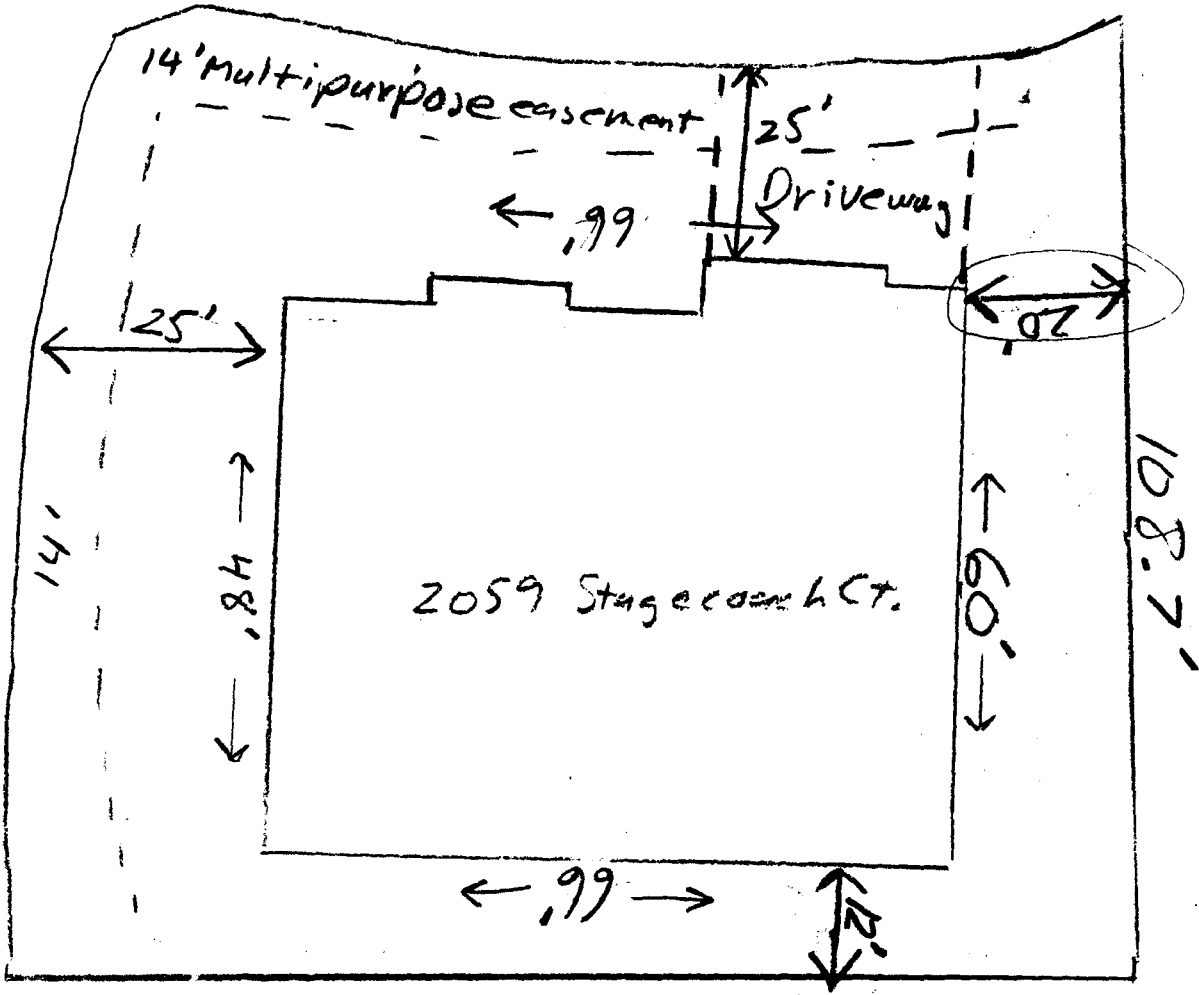 14' Multipurpose easement
25'
Driveway
66'
25'
20'
108.7'
14'
48'
2059 Stagecoach Ct.
60'
66'
12'